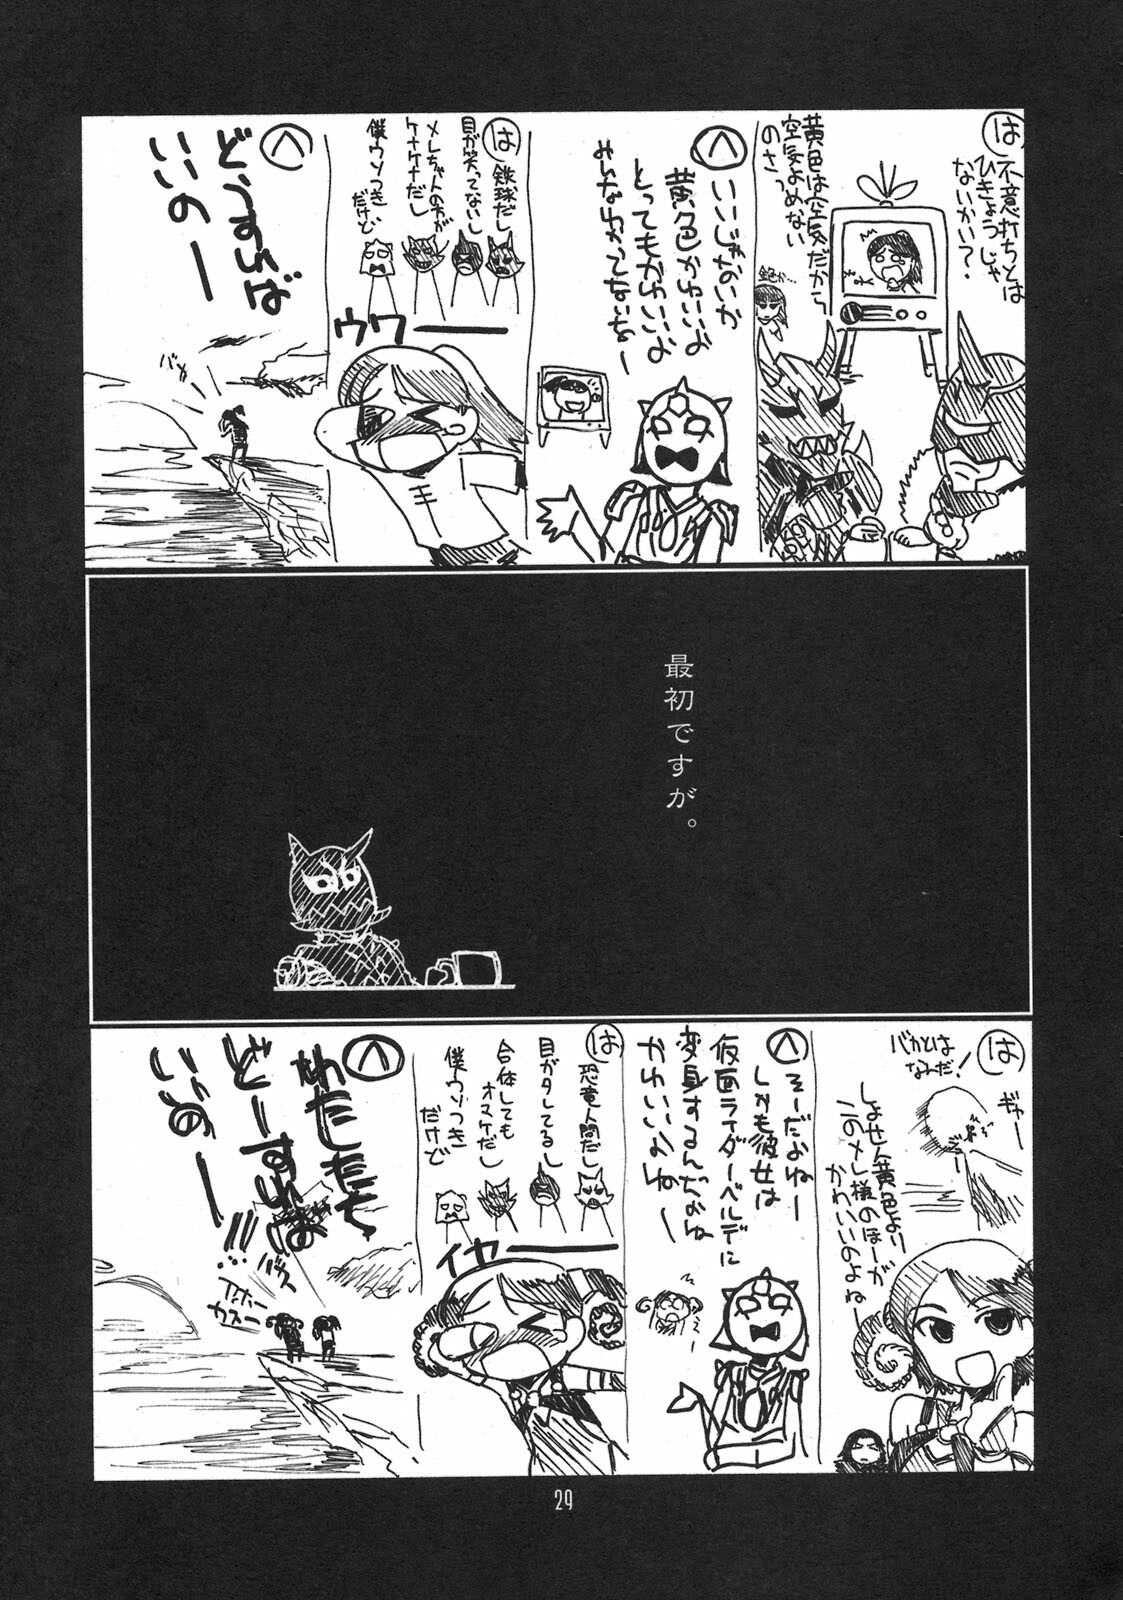 は
不意打ちとは
ひきょうじゃ
ないかい?
黄色は空気だから
空気よめない
のさっ
へ
いいじゃないか
黄色かわいいよ
とってもかわいいよ
みんなわかってないなー
は
鉄球だし
目が笑ってないし
メレちゃんの方が
ケナゲだし
僕ウソつき
だけど
ウワー
へ
ど、うすれば
いいのー
バカー
最初ですが。
は
バカとは
なんだ!
ギャー
しょせん黄色より
このメレ様のほーが
かわいいのよねー
へ
そーだよねー
しかも彼女は
仮面ライダーベルデに
変身するんだよね
かわいいよねー
えー
は
恐竜人間だし
目がタレてるし
合体しても
オマケだし
僕ウソつき
だけど
イヤー
へ
わたしたち
どーすれば
いいのー
!!!
バカー
アホー
カスー
29